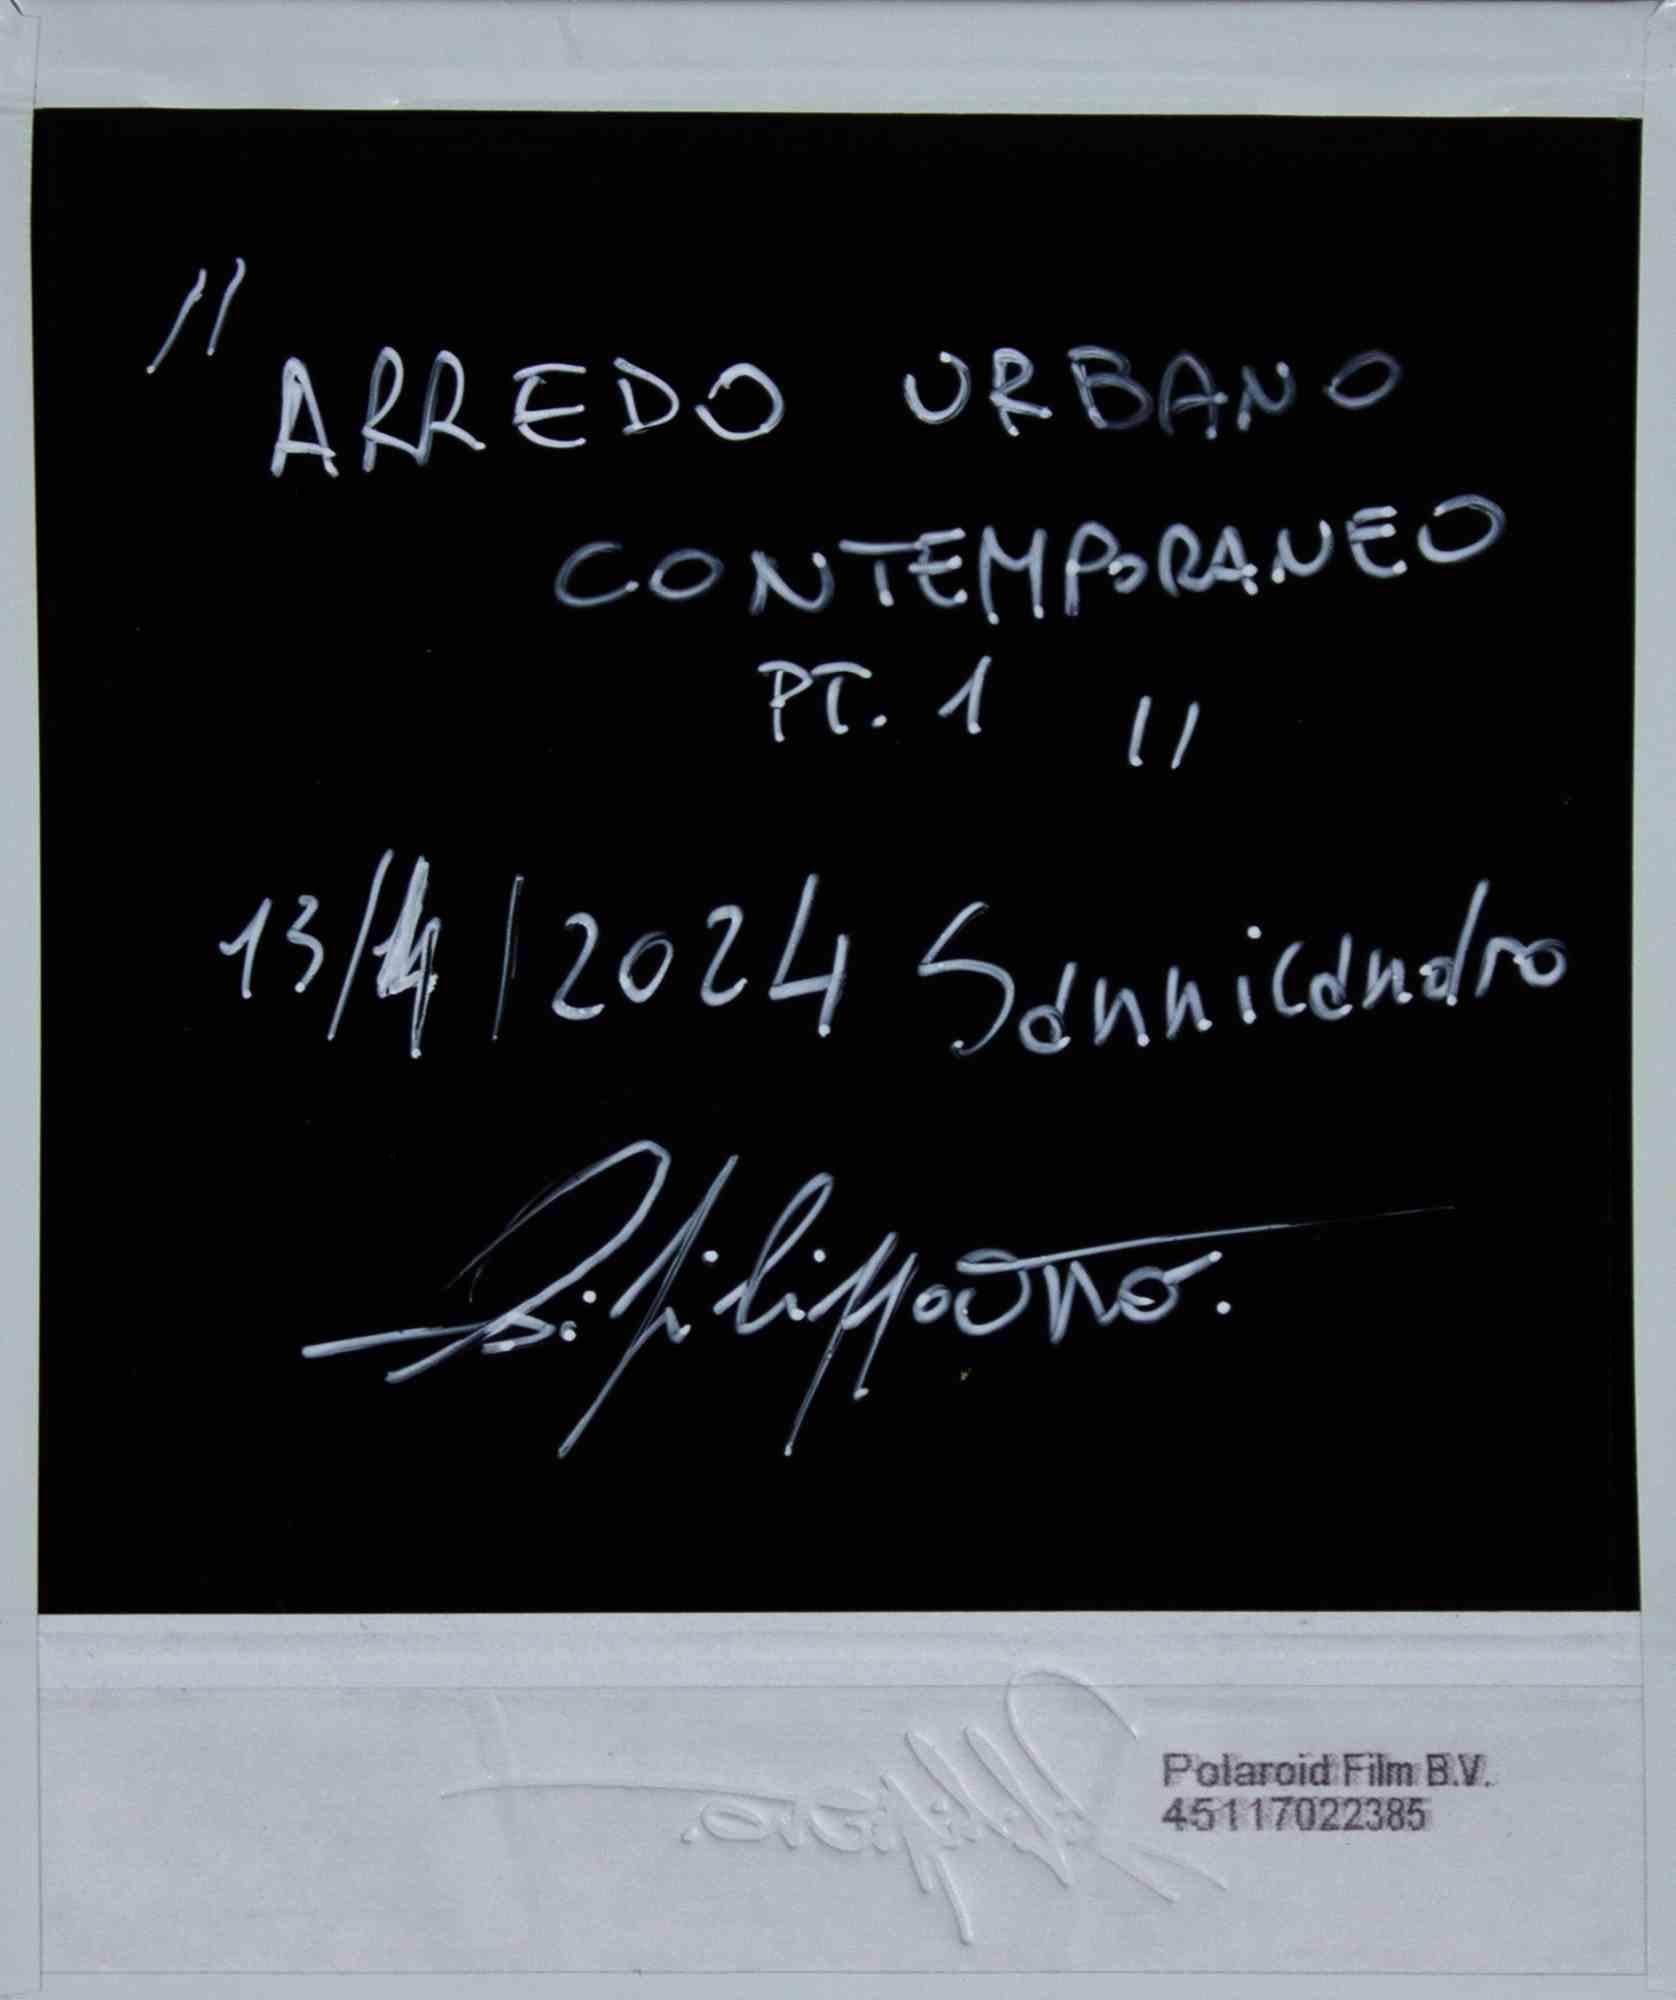 "ARREDO URBANO
CONTEMPORANEO
PT. 1"
13/4/2024 Sannicandro
Polaroid Film B.V.
45117022385